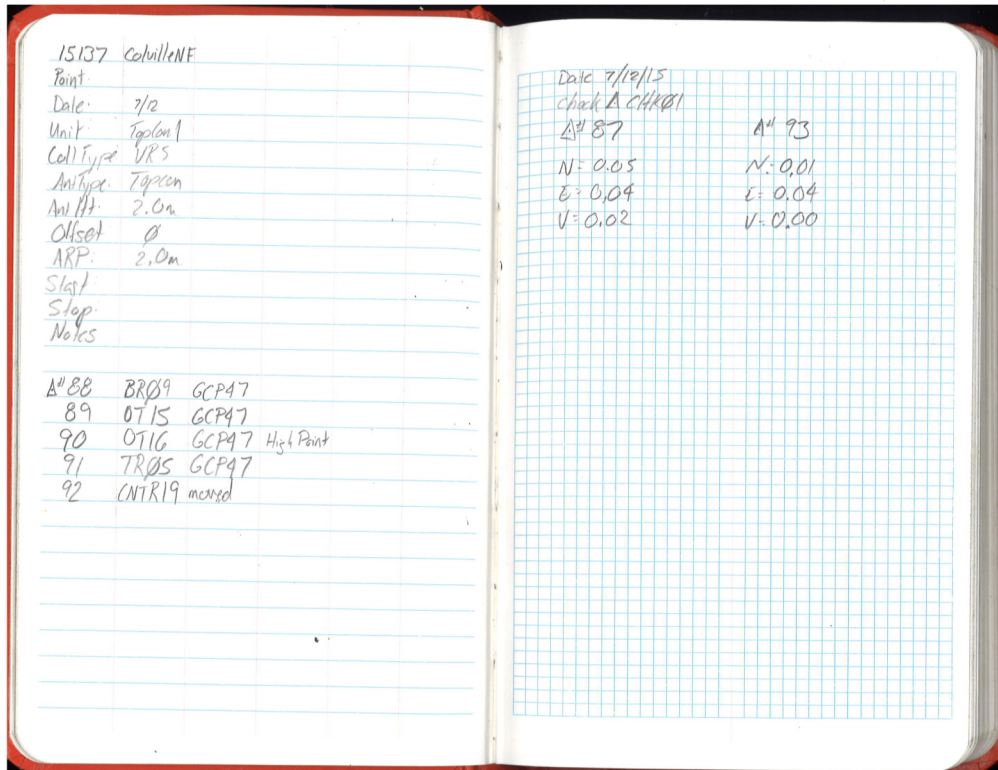 15137 ColvilleNF
Point.
Date: 7/12
Unit Topcon 1
Coll Type VRS
Ant Type: Topcon
Ant Ht: 2.0m
Offset Ø
ARP: 2.0m
Start
Stop
Notes
Δ# 88 BRØ9 GCP47
89 OT15 GCP47
90 OT16 GCP47 High Point
91 TRØ5 GCP47
92 CNTR19 moved
Date 7/12/15
check Δ CHKØ1
Δ# 87 Δ# 93
N= 0.05 N: 0.01
E= 0.04 E: 0.04
V= 0.02 V: 0.00